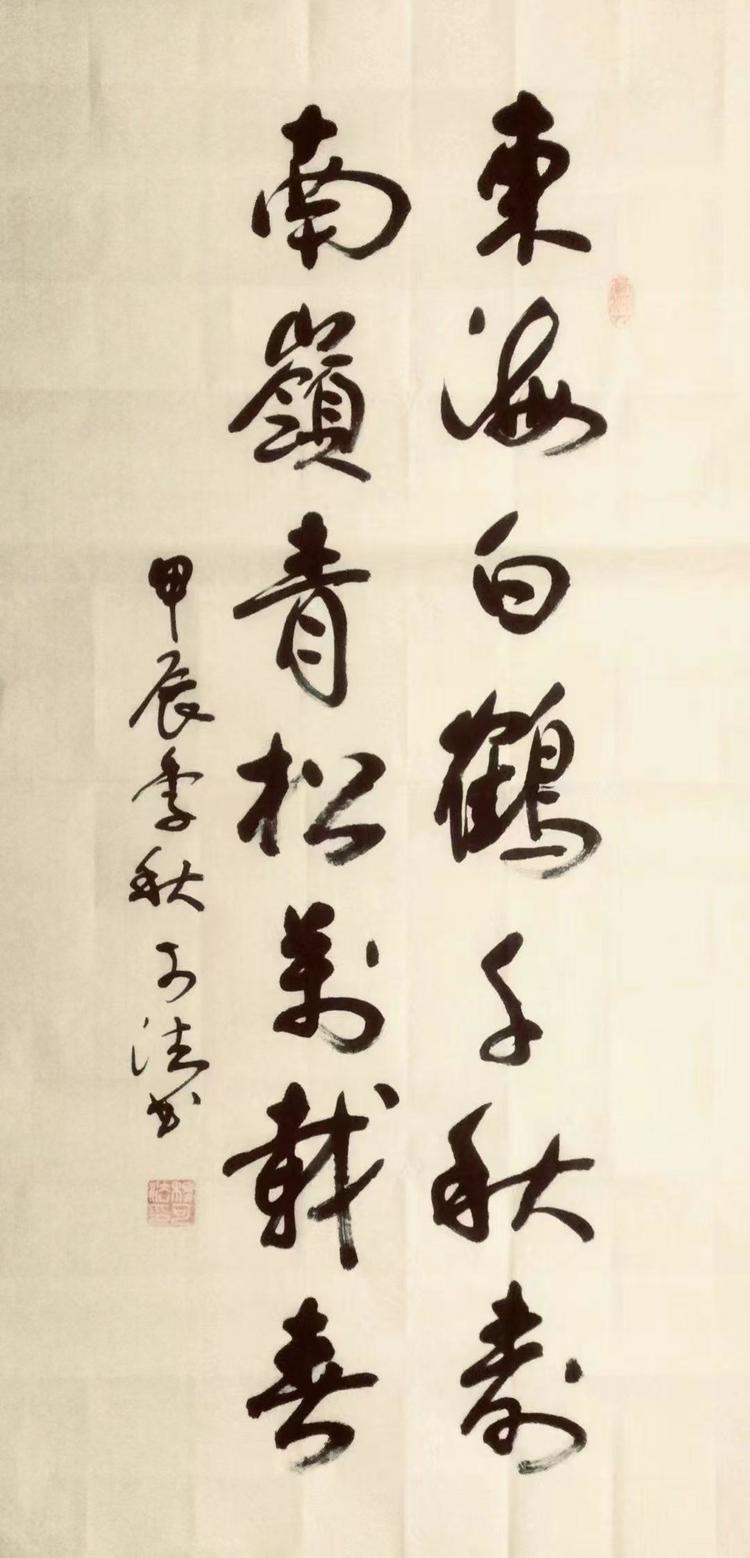 東海白鶴千秋壽
南嶺青松萬載春
甲辰季秋可法书